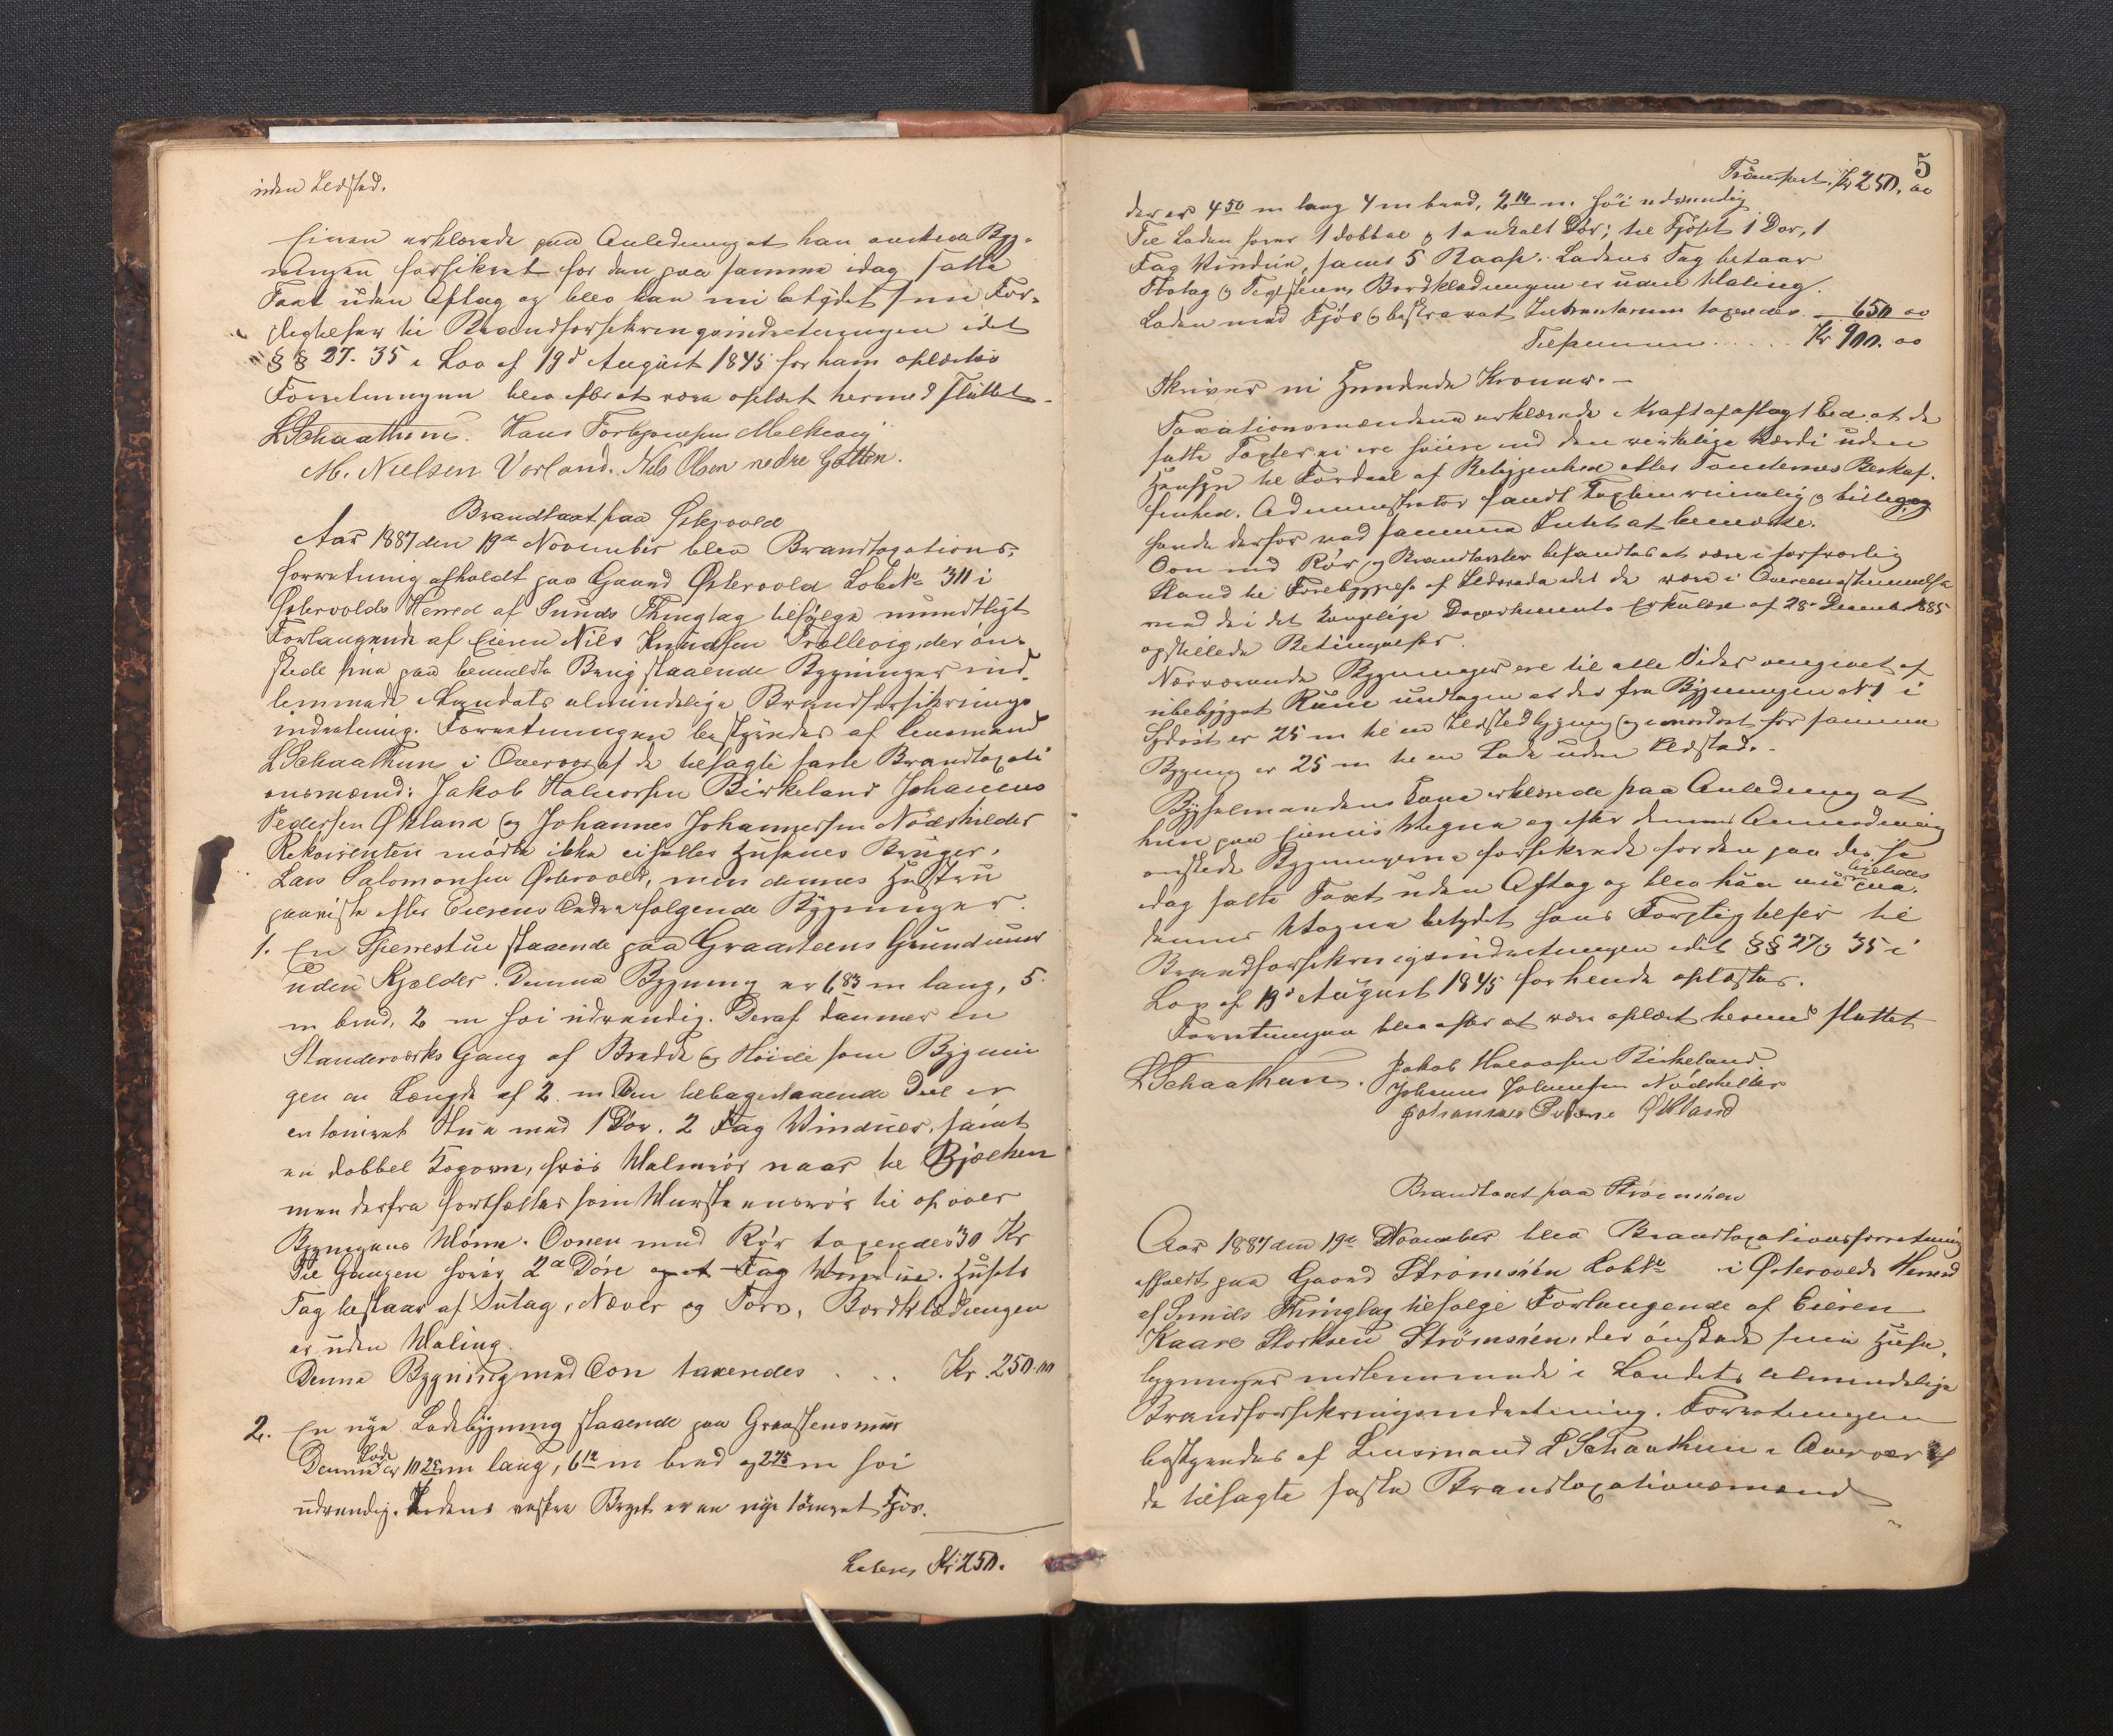 uden Ildsted.
Eieren erklærede paa Anledning at han ønskede Byg-
ningen forsikret for den paa samme idag satte
Taxt uden Aftag og blev han nu betydet sine For-
pligtelser til Brandforsikringsindretningen idet
§ § 27. 35 i Lov af 19d August 1845 for ham oplæstes
Forretningen blev efter at være oplæst hermed sluttet.
LSchaathun. Hans Torbjørnsen Melkevig
M. Nielsen Vorland. Nils Olsen nedre Gotten.
Brandtaxt paa Østervold
Aar 1887 den 19de November blev Brandtaxations-
forretning afholdt paa Gaard Østervold Løbe No 311 i
Østervolds Herred af Sunds Thinglag tilfølge mundtligt
Forlangende af Eieren Nils Knudsen Trællevig, der øn-
skede sine paa bemeldte Brug staaende Bygninger ind-
lemmede i Landets almindelige Brandforsikrings
indretning. Forretningen bestyredes af Lensmand
LSchaathun i Overvær af de tilsagte faste Brandtaxati
onsmænd: Jakob Halvorsen Birkeland Johannes
Pedersen Økland og Johannes Johannessen Nødskilder
Rekvirenten mødte ikke eiheller Husenes Bruger,
Lars Salomonsen Østervold, men dennes Hustru
paaviste efter Eierens Ordre følgende Bygninger.
1. En Sperrestue staaende paa Graasteens Grundmur
uden Kjælder. Denne Bygning er 6 83 m lang, 5
m bred, 2 m høi udvendig. Deraf danner en
Standerværks Gang af Bredde og Høide som Bygnin
gen en Længde af 2 m Den tilbagestaaende Deel er
en tømret Stue med 1 Dør. 2 Fag Vinduer, samt
en dobbel Kogovn, hvis Malmrør naar til Bjælken
men derfra fortsættes som Mursteensrør til op over
Bygningens Møne. Ovnen med Rør taxeredes 30 Kr
Til Gangen hører 2de Døre og et Fag Vindue. Husets
Tag bestaar af Sutag, Næver og Torv, Bordklædningen
er uden Maling.
Denne Bygning med Ovn taxeredes . . . Kr. 250.00
2. En nye Ladebygning staaende paa Graasteensmur
Denne Lade er 10 25 m lang, 6 12 m bred og 2 75 m høi
udvendig. Ladens vestre Borget er en nye tømret Fjøs.
Lateris Kr 250.
5
Transport. Kr 250. 00
der er 4 50 m lang 4 m bred, 2 10 m høi udvendig
Til Laden hører 1 dobbel og 1 enkelt Dør; til Fjøset 1 Dør, 1
Fag Vindue, samt 5 Baase. Ladens Tag bestaar
Teglsteen, Bordklædningen er uden Maling.
Laden med Fjøs og beskrevet Inventarium taxeredes 650 00
Tilsammen . . . . . Kr 900. 00
Skriver ni Hundrede Kroner. —
Taxationsmændene erklærede i Kraft af aflagt Eed at de
satte Taxter ei ere høiere end den virkelige Værdi uden
Hensyn til Fordeel af Beliggenhed eller Tomternes Beskaf-
fenhed. Administrator fandt Taxten rimelig og billig og
havde derfor ved samme Intet at bemærke.
Ovn med Rør, og Brandtaxter befandtes at være i forsvarlig
Stand til Forebyggelse af Ildsvaade idet de vare i Overeensstemmelse
med de i det Kongelige Departements Cirkulære af 28de Decemb. 1885
opstillede Betingelser.
Nærværende Bygninger ere til alle Sider omgivet af
ubebygget Rum undtagen at der fra Bygningen No 1 i
Sydost er 25 m til en Ildstedbygning og i nordost for samme
Bygning er 25 m til en Lade uden Ildsted. -
Bygselmandens Kone erklærede paa Anledning at
hun paa Eierens Vegne og efter dennes Anmodning
ønskede Bygningerne forsikrede for den paa disse
idag satte Taxt uden Aftag og blev hun nu ligeledes paa
dennes Vegne betydet hans Forpligtelser til
Brandforsikringsindretningen idet §§ 27 og 35 i
Lov af 19d August 1845 for hende oplæstes.
Forretningen blev efter at være oplæst hermed sluttet
LSchaathun. Jakob Halvorsen Birkeland
Johannes Johannesen Nødskilder
Johannes Pedersen Økland
Brandtaxt paa Strømsnæs
Aar 1887 den 19de November blev Brandtaxationsforretning
afholdt paa Gaard Strømsnés LobNo i Østervolds Herred
af Sunds Thinglag tilfølge Forlangende af Eieren
Kaare Storksen Strømsnés, der ønskede sine Huse,
bygninger indlemmede i Landets almindelige
Brandforsikringsindretning. Forretningen
bestyredes af Lensmand L Schaathun i Overvær af
de tilsagte faste Brandtaxationsmænd